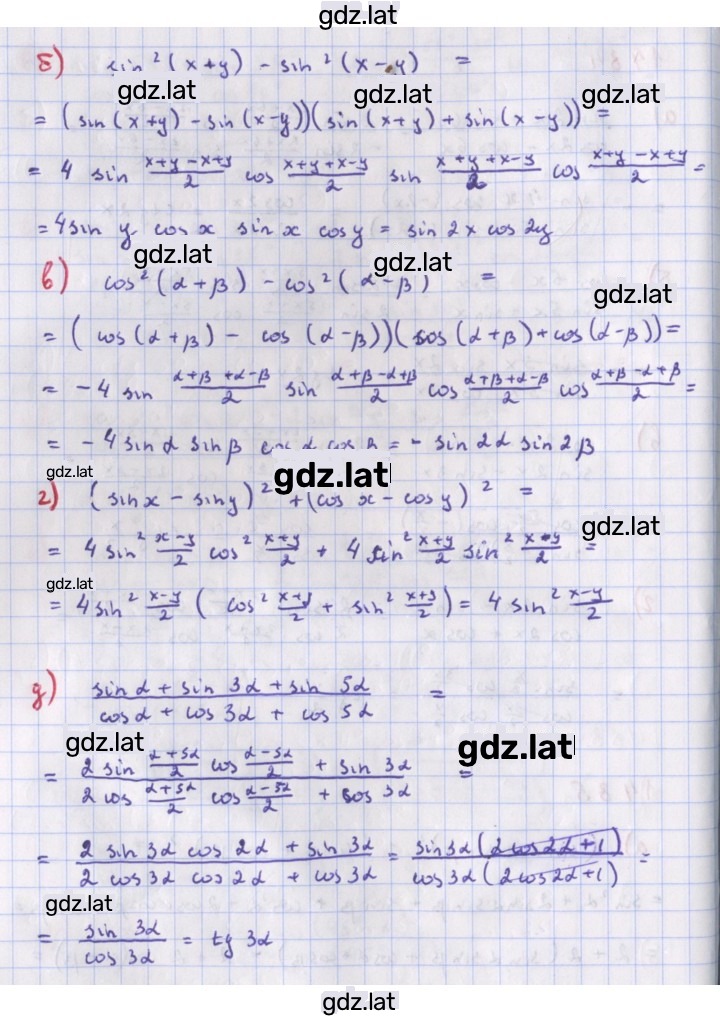 gdz.lat
б) sin²(x+y) - sin²(x-y) =
gdz.lat gdz.lat gdz.lat
= (sin(x+y) - sin(x-y))(sin(x+y) + sin(x-y)) =
= 4 sin (x+y-x+y)/2 cos (x+y+x-y)/2 sin (x+y+x-y)/2 cos (x+y-x+y)/2 =
= 4sin y cos x sin x cos y = sin 2x cos 2y
gdz.lat gdz.lat
в) cos²(α+β) - cos²(α-β) =
gdz.lat
= (cos(α+β) - cos(α-β))(cos(α+β)+cos(α-β)) =
= -4 sin (α+β+α-β)/2 sin (α+β-α+β)/2 cos (α+β+α-β)/2 cos (α+β-α+β)/2 =
= -4 sinα sinβ cos α cos β = - sin 2α sin 2β
gdz.lat gdz.lat
г) (sinx - siny)² + (cos x - cosy)² =
gdz.lat
= 4 sin² (x-y)/2 cos² (x+y)/2 + 4 sin² (x+y)/2 sin² (x-y)/2 =
gdz.lat
= 4 sin² (x-y)/2 (cos² (x+y)/2 + sin² (x+y)/2) = 4 sin² (x-y)/2
д) (sin α + sin 3α + sin 5α)/(cosα + cos 3α + cos 5α) =
gdz.lat gdz.lat
= (2 sin (α+5α)/2 cos (α-5α)/2 + sin 3α)/(2 cos (α+5α)/2 cos (α-5α)/2 + cos 3α) =
= (2 sin 3α cos 2α + sin 3α)/(2 cos 3α cos 2α + cos 3α) = (sin3α (2 cos 2α + 1))/(cos 3α (2cos2α+1)) =
gdz.lat
= (sin 3α)/(cos 3α) = tg 3α
gdz.lat